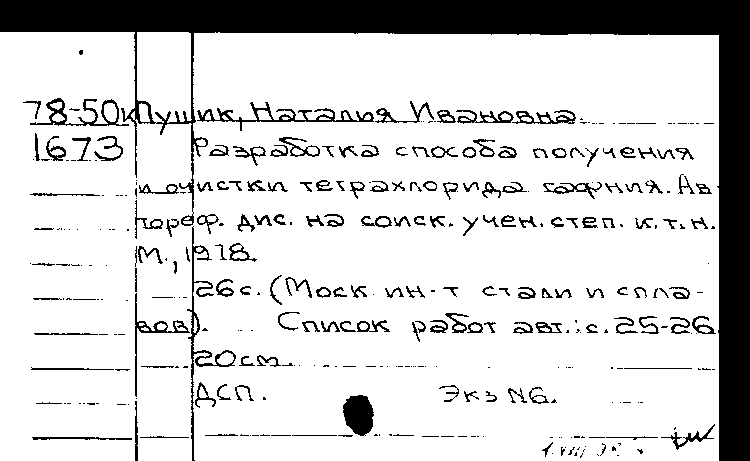 78-50к Пушик, Наталия Ивановна.
1673 Разработка способа получения
и очистки тетрахлорида гафния. Ав-
тореф. дис. на соиск. учен. степ. к.т.н.
М., 1978.
26с. (Моск. ин-т стали и спла-
вов). Список работ авт.: с. 25-26.
20см.
ДСП. Экз №6.